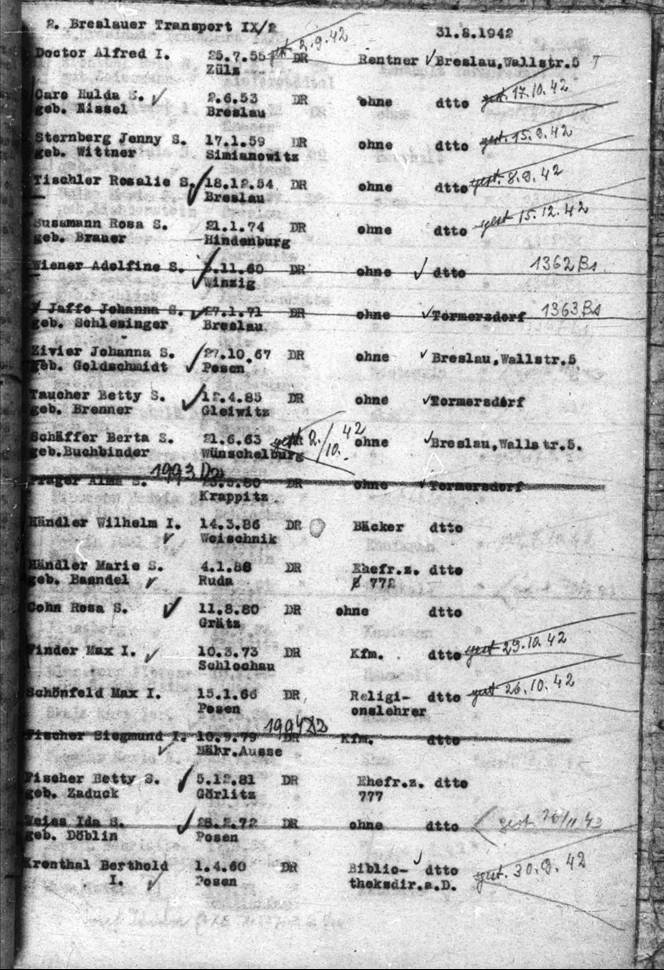 2. Breslauer Transport IX/2 31.8.1942
Doctor Alfred I. 25.7.55 gest 2.9.42 DR Rentner Breslau,Wallstr.5
Zülz
Caro Hulda S. 2.6.53 DR ohne dtto gest. 17.10.42
geb. Nissel Breslau
Sternberg Jenny S. 17.1.59 DR ohne dtto gest. 15.9.42
geb. Wittner Simianowitz
Tischler Rosalie S. 18.12.54 DR ohne dtto gest. 8.9.42
Breslau
Susamann Rosa S. 21.1.74 DR ohne dtto gest 15.12.42
geb. Brauer Hindenburg
Wiener Adelfine S. .11.60 DR ohne dtto 1362 Bs
Winzig
Jaffe Johanna S. 27.1.71 DR ohne Tormersdorf 1363 Bs
geb. Schlesinger Breslau
Eivier Johanna S. 27.10.67 DR ohne Breslau,Wallstr.5
geb. Goldschmidt Posen
Taucher Betty S. 12.4.85 DR ohne Tormersdorf
geb. Brenner Gleiwitz
Schäffer Berta S. 21.6.63 gest 2./10. 42 ohne Breslau,Wallstr.5.
geb.Buchbinder Wünschelburg
Prager Alma S. 1993 DR ohne Tormersdorf
Krappitz
Händler Wilhelm I. 14.3.86 DR Bäcker dtto
Woischnik
Händler Marie S. 4.1.88 DR Ehefr.z. dtto
geb. Baendel Ruda 772
Cohn Rosa S. 11.8.80 DR ohne dtto
Grätz
Pinder Max I. 10.3.73 DR Kfm. dtto gest 29.10.42
Schlochau
Schönfeld Max I. 15.1.66 DR Religi- dtto gest 26.10.42
Posen onslehrer
Fischer Siegmund I. 10.9.79 DR Kfm. dtto
Mähr.Ausse
Fischer Betty S. 5.12.81 DR Ehefr.z. dtto
geb. Zaduck Görlitz 777
Weiss Ida S. 28.2.72 DR ohne dtto gest.
geb. Döblin Posen
Kronthal Berthold 1.4.60 DR Biblio- dtto gest. 30.9.42
I. Posen theksdir.a.D.